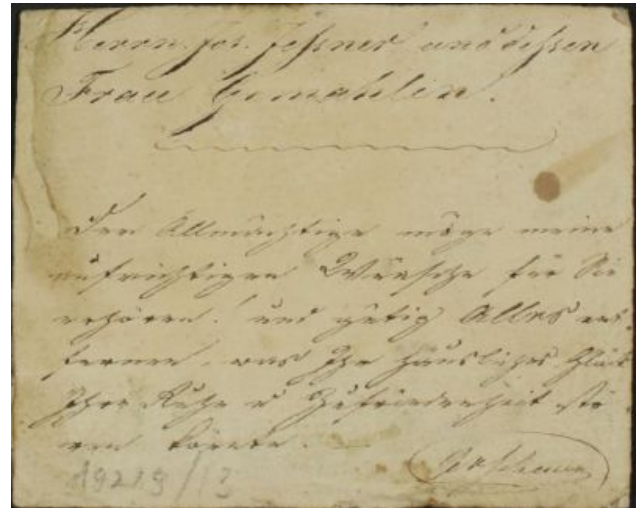 Herrn Jos. Jessner und dessen
Frau Gemahlin.
Der Allmächtige möge meine
aufrichtigen Wünsche für Sie
erhören! und gütig Alles ent
fernen, was Ihr häusliches Glück
Ihre Ruhe u Zufriedenheit stö
ren könnte.
19219/13